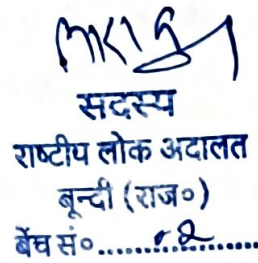 सदस्य
राष्टीय लोक अदालत
बून्दी (राज०)
बेंच सं०...............